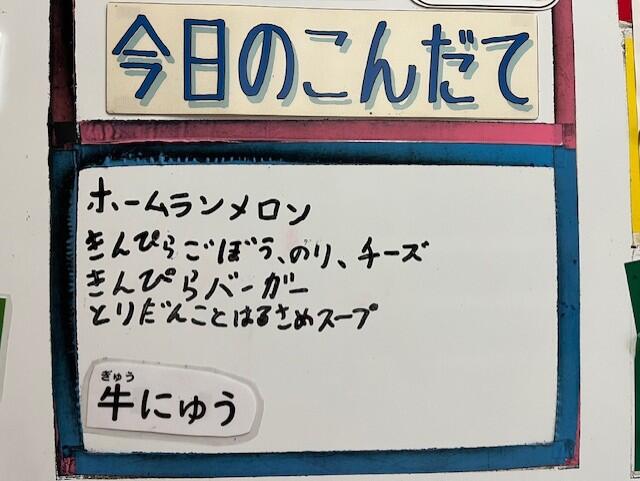 今日のこんだて
ホームランメロン
きんぴらごぼう、のり、チーズ
きんぴらバーガー
とりだんことはるさめスープ
ぎゅう
牛にゅう